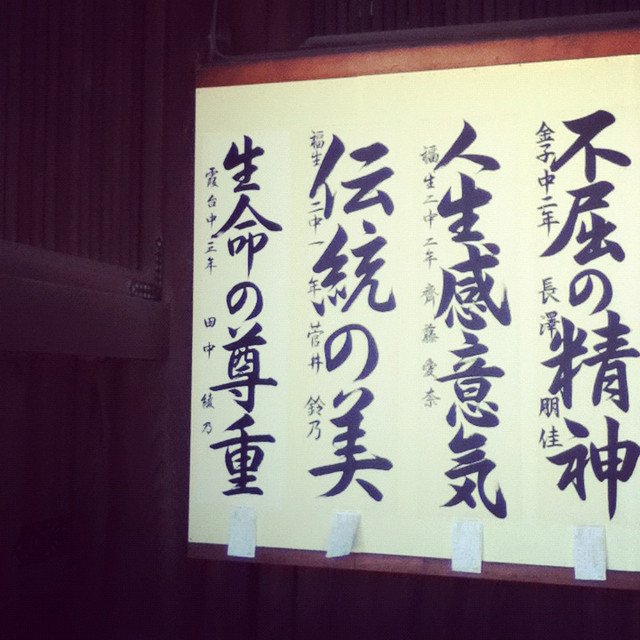 不屈の精神
金子中二年 長澤朋佳
人生感意気
福生二中二年 齊藤愛奈
伝統の美
福生二中一年 菅井鈴乃
生命の尊重
霞台中三年 田中綾乃